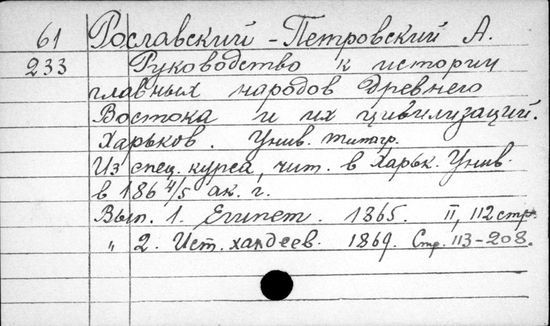 61 Рославский-Петровский А.
233 Руководство к истории
главных народов Древнего
Востока и их цивилизаций.
Харьков. Унив. типогр.
Из спец. курса, чит. в Харьк. Унив.
в 1864/5 ак. г.
Вып. 1. Египет. 1865. II, 112 стр.
" 2. Ист. халдеев. 1869. Стр. 113-208.